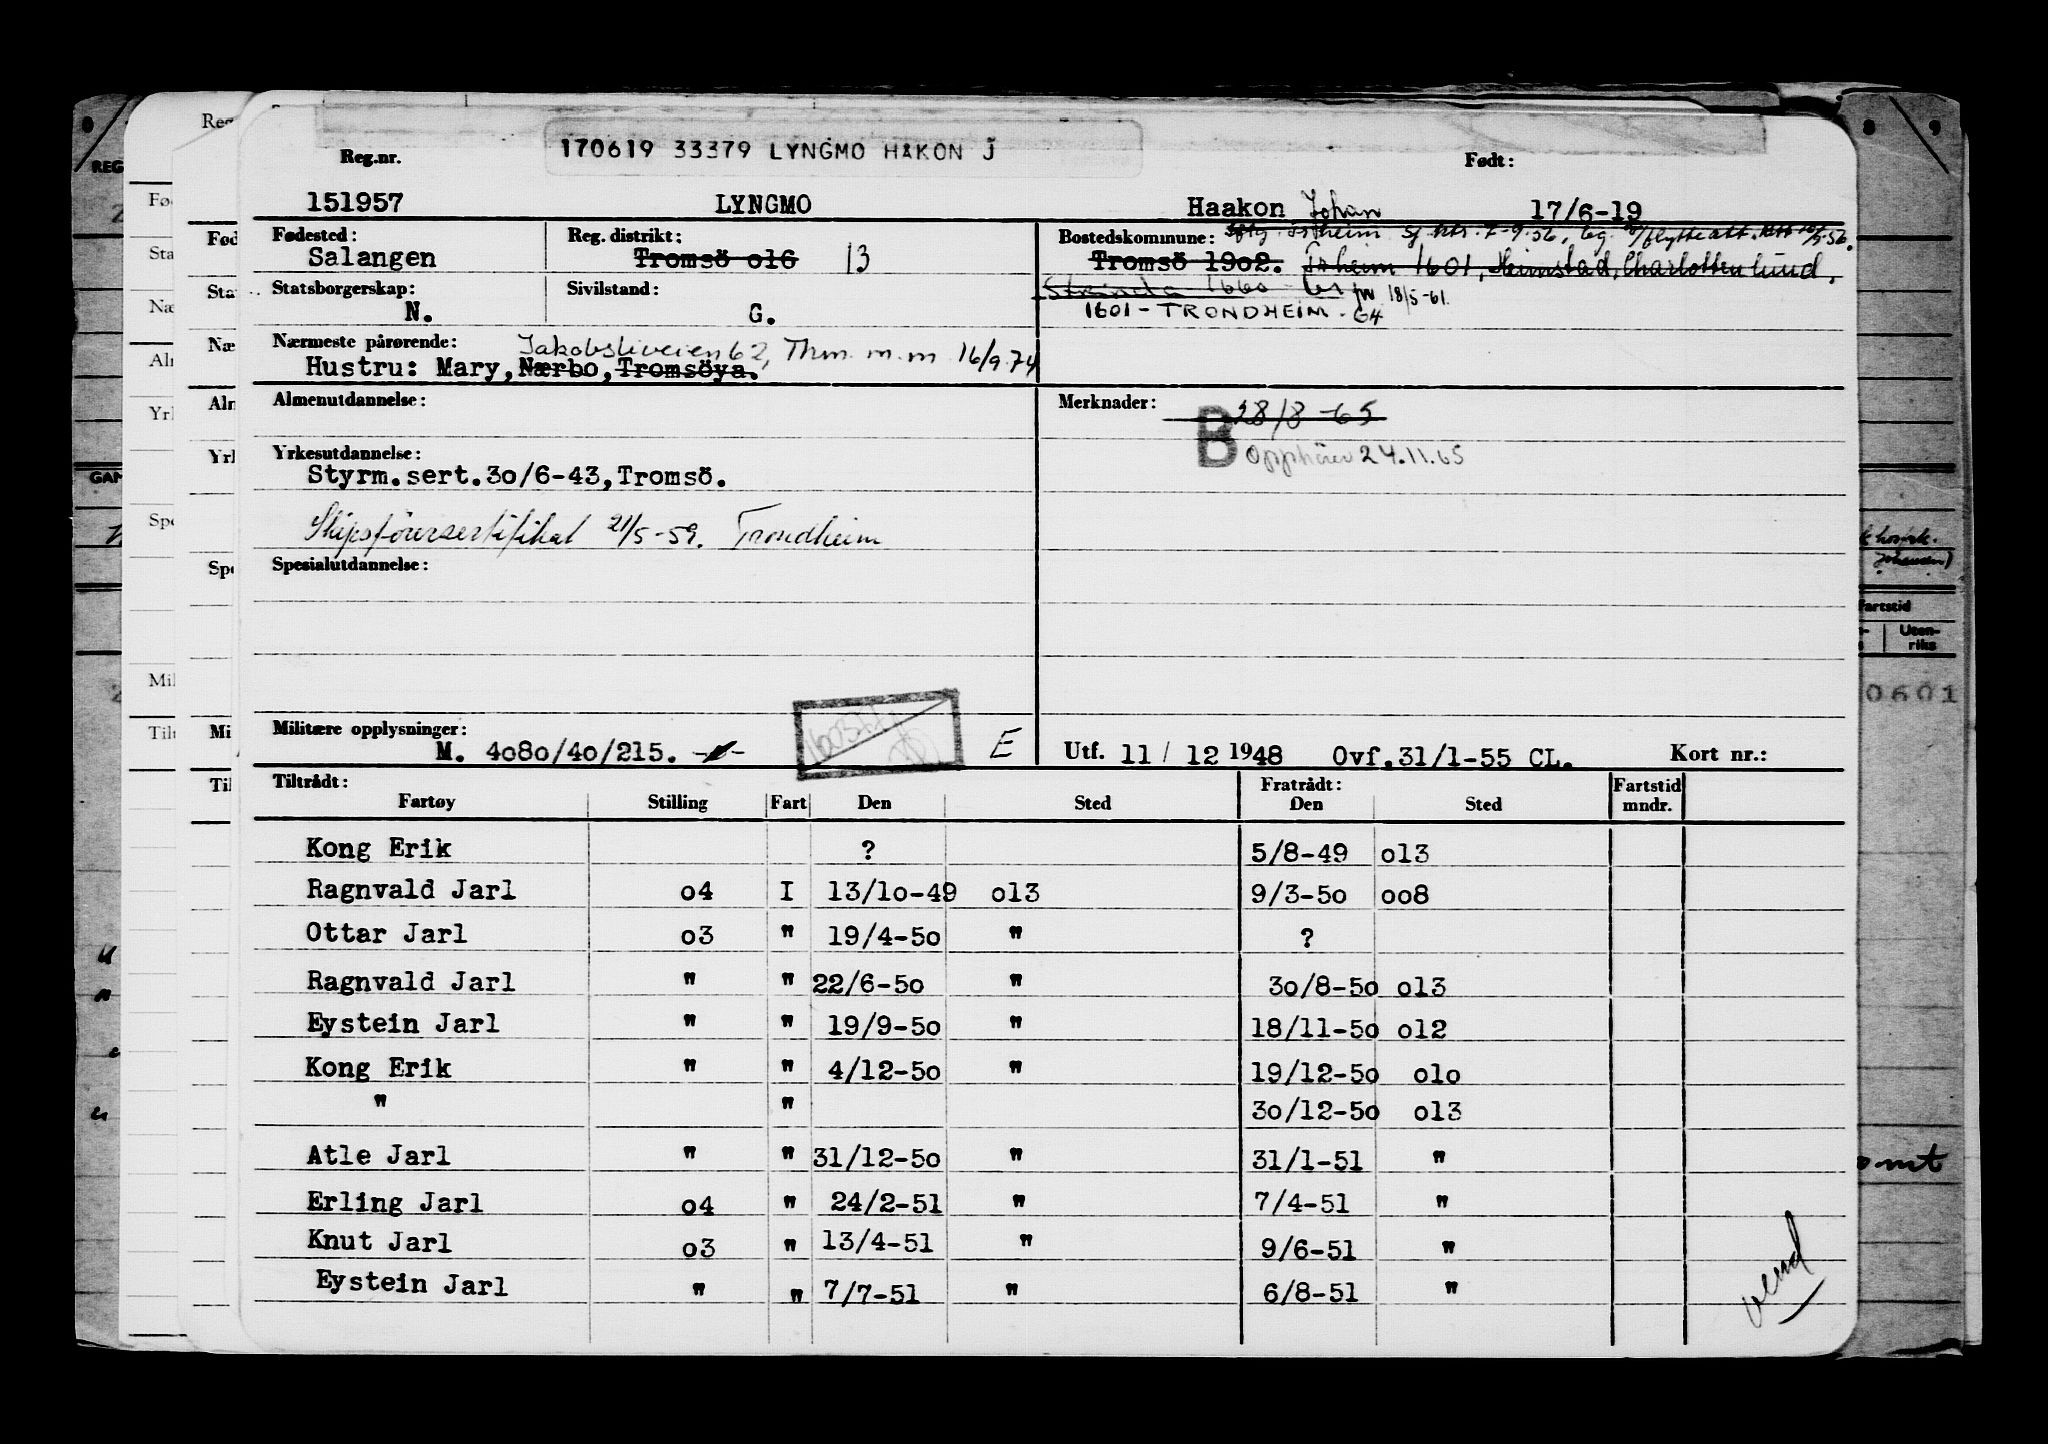 170619 33379 LYNGMO HAKON J
Reg.nr. Født:
151957 LYNGMO Haakon Johan 17/6-19
Fødested: Reg. distrikt: Bostedskommune:
Salangen Tromsö o16 13 Tromsö 19o2. Tr.heim 1601, Hemstad, Charlottenlund.
Statsborgerskap: Sivilstand: Strinda 1660 - 18/5-61.
N. G. 1601 - TRONDHEIM - G4
Nærmeste pårørende: Jakobsliveien 62, Thm. m.m 16/9.74
Hustru: Mary, Nærbo, Tromsöya.
Almenutdannelse: Merknader: 28/8-65
B Opphörer 24.11.65
Yrkesutdannelse:
Styrm.sert.3o/6-43, Tromsö.
Skipsförersertifikat 21/5-59. Trondheim
Spesialutdannelse:
Militære opplysninger:
M. 4o8o/4o/215. E Utf. 11 / 12 1948 Ovf.31/1-55 CL. Kort nr.:
Tiltrådt: Fratrådt: Fartstid
Fartøy Stilling Fart Den Sted Den Sted mndr.
Kong Erik ? 5/8-49 o13
Ragnvald Jarl o4 I 13/1o-49 o13 9/3-5o oo8
Ottar Jarl o3 " 19/4-5o " ?
Ragnvald Jarl " " 22/6-5o " 3o/8-5o o13
Eystein Jarl " " 19/9-5o " 18/11-5o o12
Kong Erik " " 4/12-5o " 19/12-5o o1o
" " 3o/12-5o o13
Atle Jarl " " 31/12-5o " 31/1-51 "
Erling Jarl o4 " 24/2-51 " 7/4-51 "
Knut Jarl o3 " 13/4-51 " 9/6-51 "
Eystein Jarl " " 7/7-51 " 6/8-51 "
vend